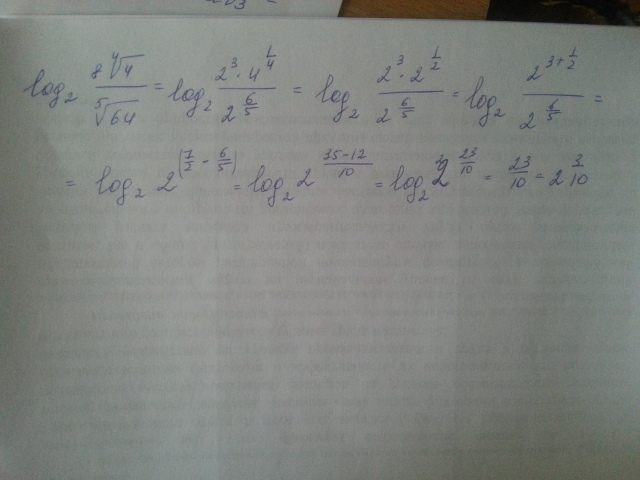 log₂ (8 ∜4)/(⁵√64) = log₂ (2³ · 4^(1/4))/(2^(6/5)) = log₂ (2³ · 2^(1/2))/(2^(6/5)) = log₂ (2^(3+1/2))/(2^(6/5)) =
= log₂ 2^(7/2 - 6/5) = log₂ 2^((35-12)/10) = log₂ 2^(23/10) = 23/10 = 2 3/10